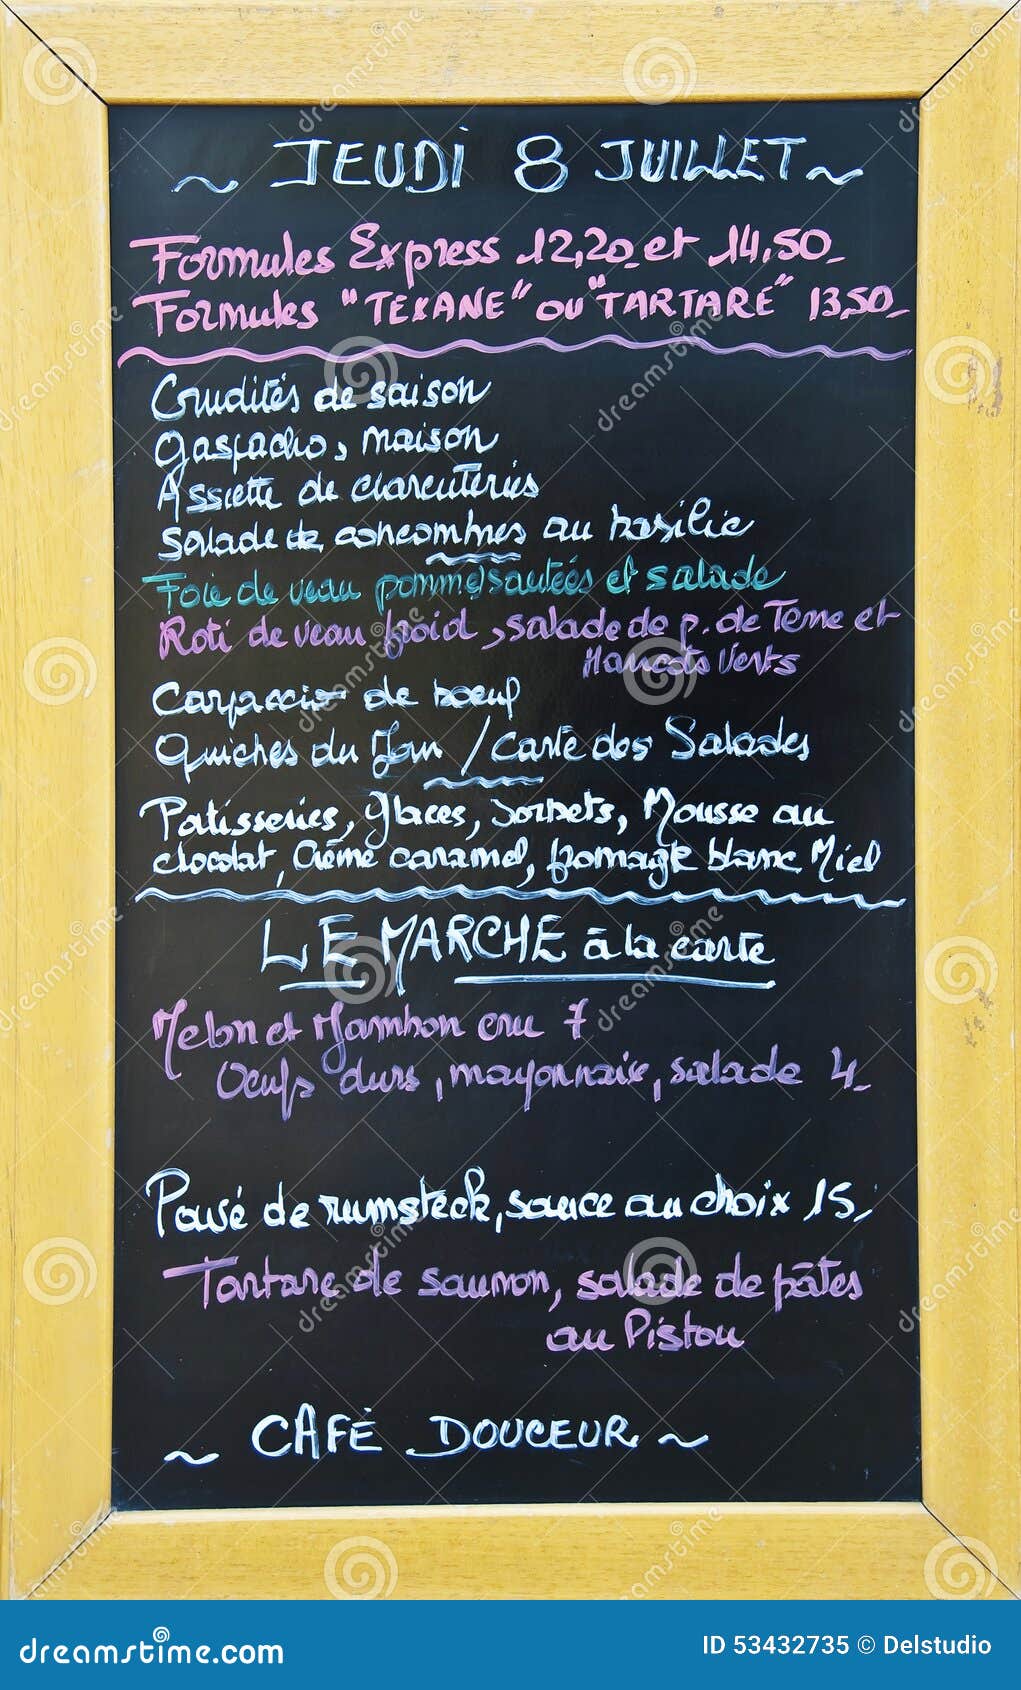 ~ JEUDI 8 JUILLET ~
Formules Express 12,20 et 14,50
Formules "TEXANE" OU "TARTARE" 13,50
Crudités de saison
Gaspacho, maison
Assiette de charcuteries
Salade de concombres au basilic
Foie de veau pommes sautées et salade
Roti de veau froid, salade de p. de Terre et
Haricots Verts
Carpaccio de boeuf
Quiches du Jour / Carte des Salades
Patisseries, Glaces, Sorbets, Mousse au
chocolat, Crème caramel, fromage blanc Miel
LE MARCHE à la carte
Melon et Jambon cru 7
Oeufs durs, mayonnaise, salade 4
Pavé de rumsteck, sauce au choix 15
Tartare de saumon, salade de pâtes
au Pistou
~ CAFÉ DOUCEUR ~
dreamstime.com
ID 53432735 © Delstudio